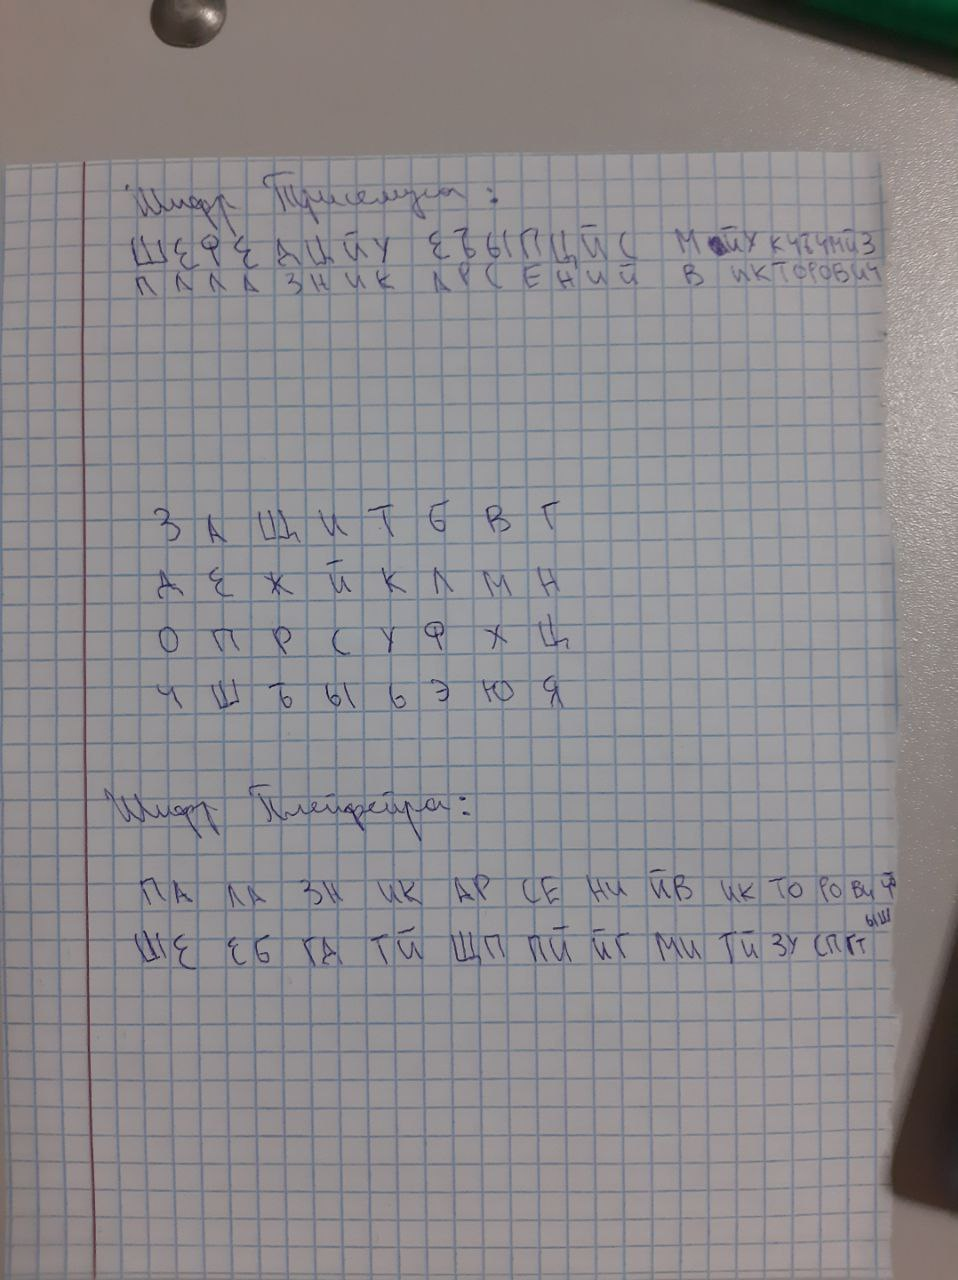 Шифр Трисемуса:
ШЕФЕ ДЩЙУ ЕЪЫПЦЙС МЙУКЧЪЧМЙЗ
ПАЛАЗНИК АРСЕНИЙ ВИКТОРОВИЧ
З А Щ И Т Б В Г
Д Е Ж Й К Л М Н
О П Р С У Ф Х Ц
Ч Ш Ъ Ы Ь Э Ю Я
Шифр Плейфейра:
ПА ЛА ЗН ИК АР СЕ НИ ЙВ ИК ТО РО ВИ
ШЕ ЕБ ГД ТЙ ЩП ПЙ ЙГ МИ ТЙ ЗУ СП ГТ ЫШ